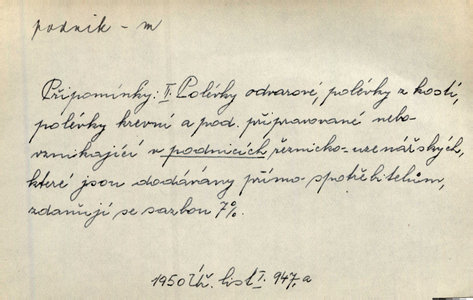 podnik - m
Připomínky: II. Polévky odvarové, polévky z kostí,
polévky krevní a pod. připravované nebo
vznikající v podnicích řeznicko-uzenářských,
které jsou dodávány přímo spotřebitelům,
zdaňují se sazbou 7%.
1950 Úř. list I. 947, a